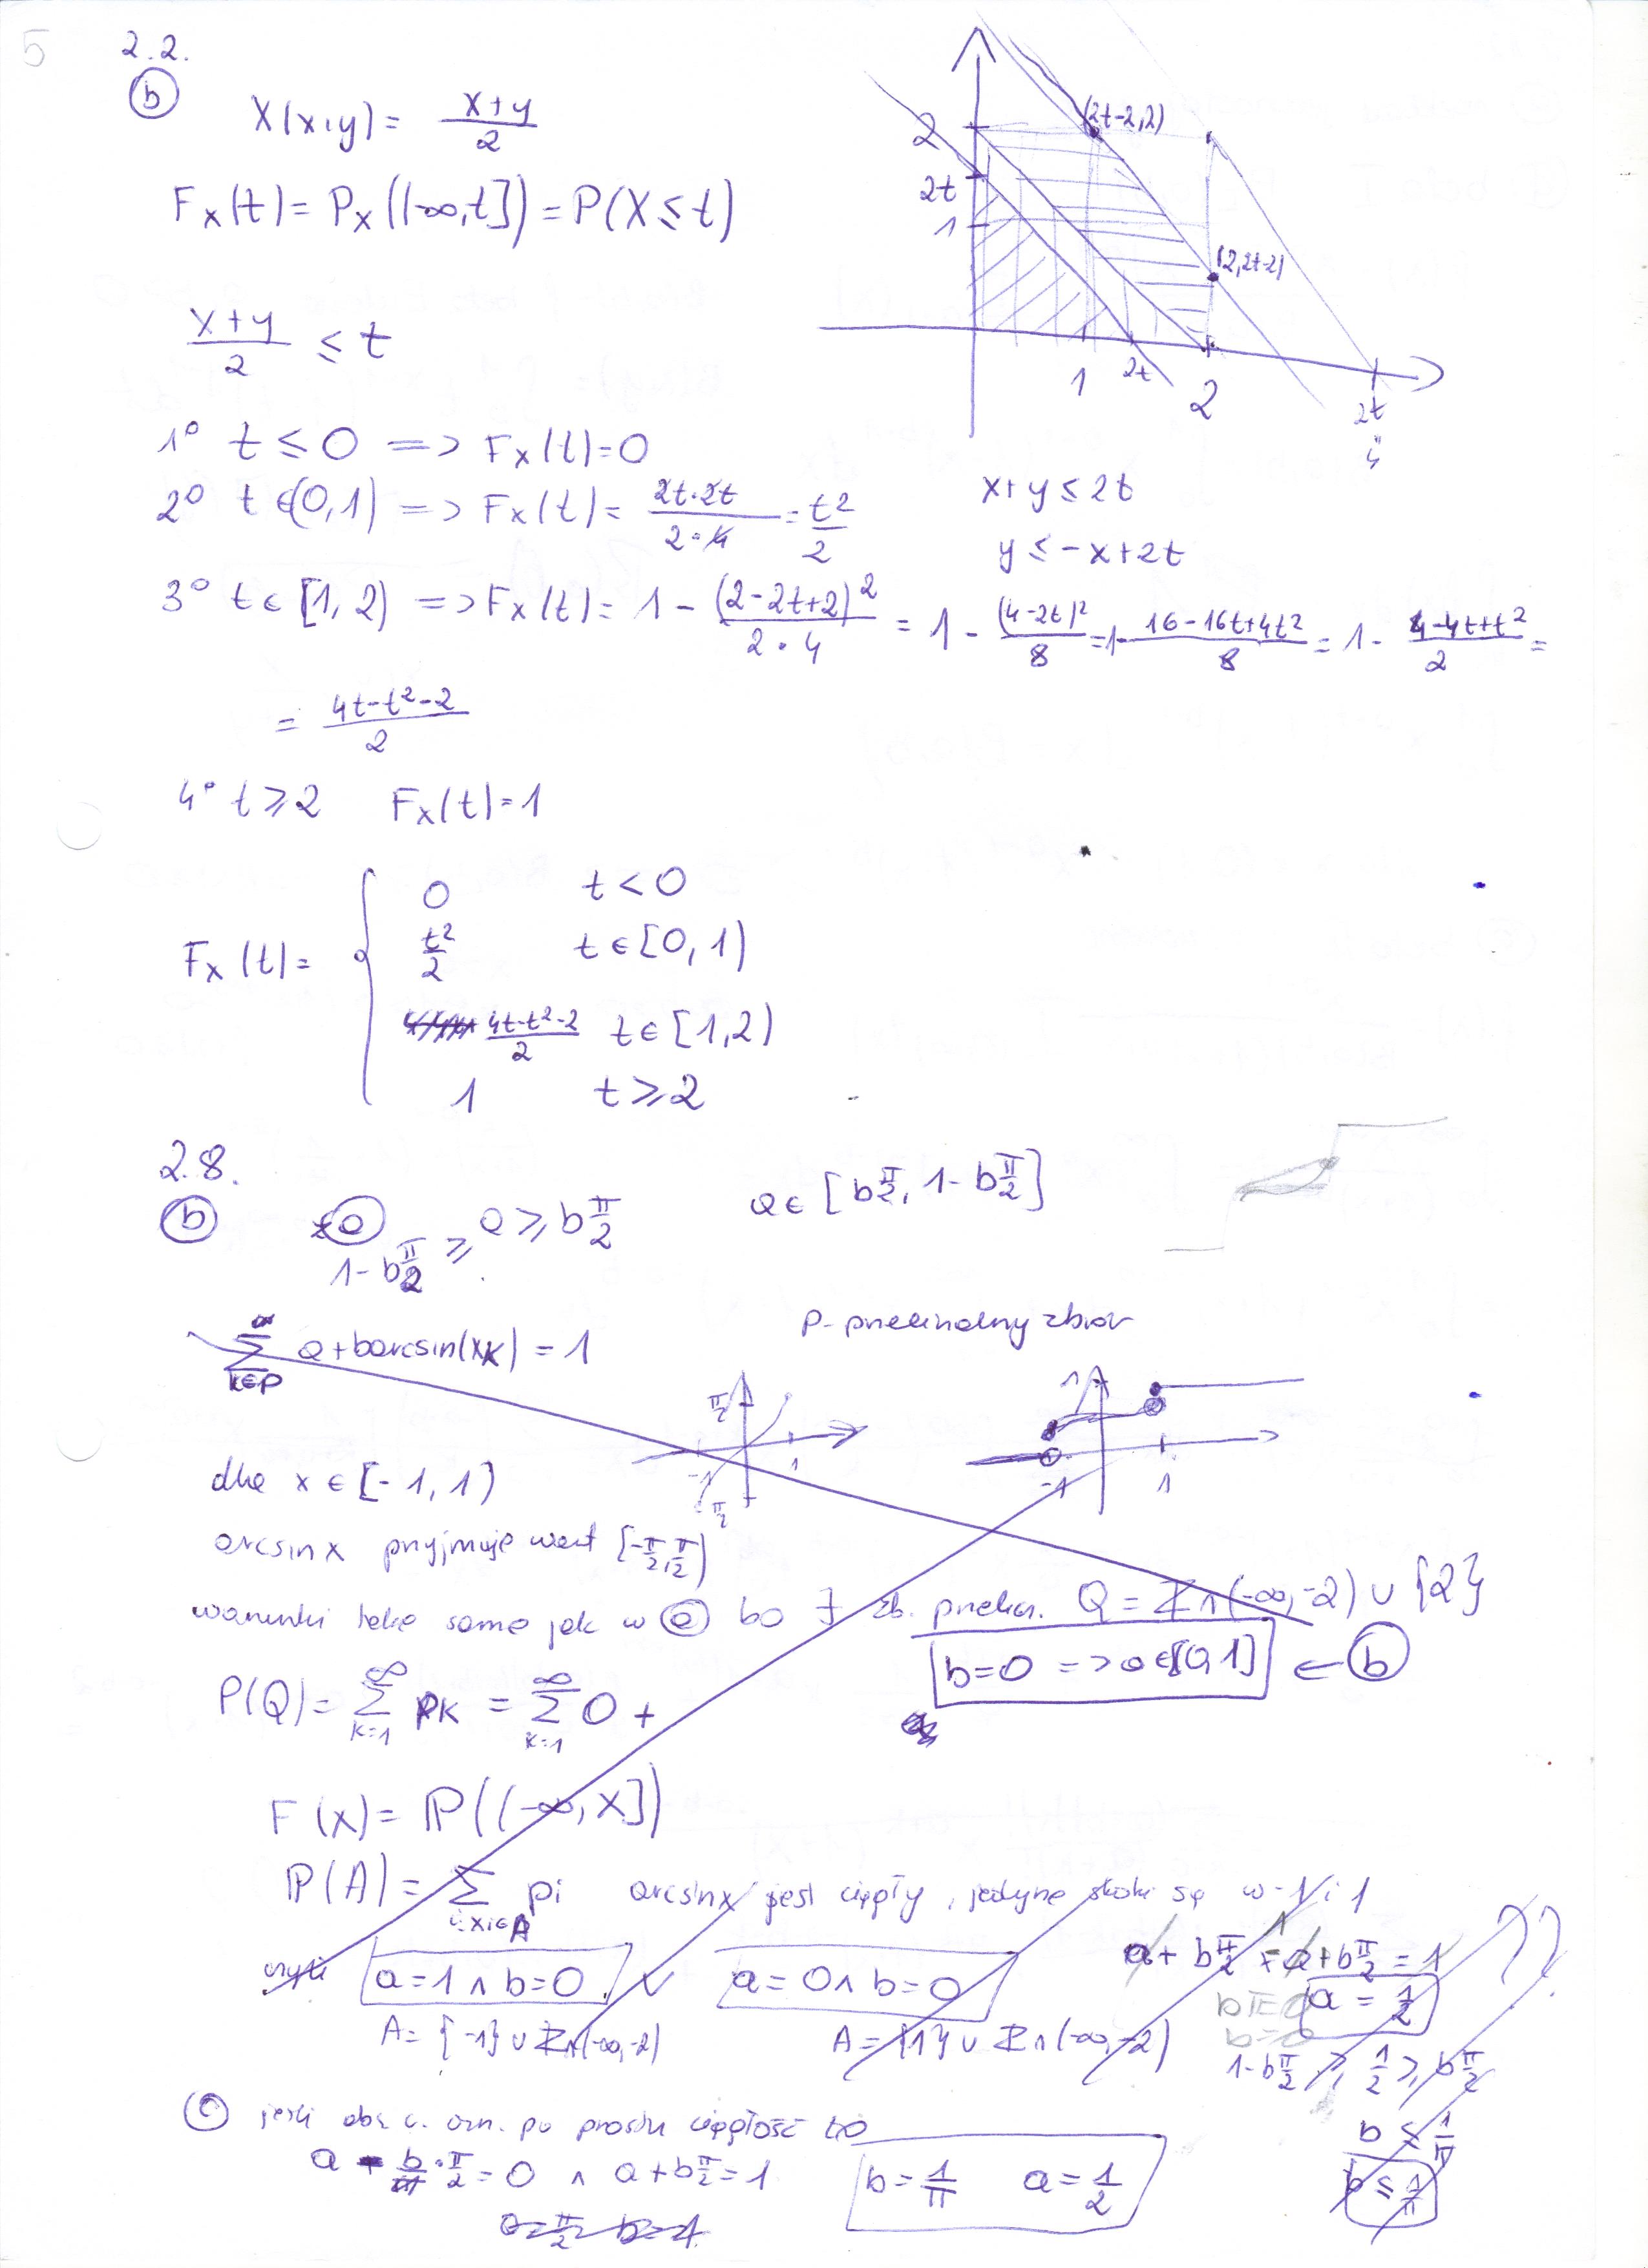 5
2.2.
b
X(x,y) = x+y / 2
F_X(t) = P_X((-∞,t]) = P(X ≤ t)
x+y / 2 ≤ t
2
2t
1
(2t-2,2)
(2,2t-2)
1 2t 2 2t
4
1° t ≤ 0 => F_X(t)=0
2° t ∈ (0,1) => F_X(t) = 2t·2t / 2·4 = t² / 2
x+y ≤ 2t
y ≤ -x+2t
3° t ∈ [1,2) => F_X(t) = 1 - (2-2t+2)² / 2·4 = 1 - (4-2t)² / 8 = 1 - 16-16t+4t² / 8 = 1 - 4-4t+t² / 2 =
= 4t-t²-2 / 2
4° t ≥ 2 F_X(t)=1
F_X(t) = {
0 t < 0
t²/2 t ∈ [0,1)
4t-t²-2 / 2 t ∈ [1,2)
1 t ≥ 2
2.8.
b
a
1-bπ/2 ≥ a ≥ bπ/2
a ∈ [bπ/2, 1-bπ/2]
∞ Σ k∈P a+barcsin(x_k) = 1
P - przeliczalny zbiór
π/2
-1 1
-π/2
1
-1 1
dla x ∈ [-1,1)
arcsinx przyjmuje wart [-π/2,π/2)
warunki takie same jak w a bo ∃ zb. przelicz. Q = Z∩(-∞,-2) ∪ {2}
b=0 => a∈[0,1] ← b
P(Q) = ∞ Σ k=1 p_k = ∞ Σ k=1 0 +
F(x) = P((-∞,x])
P(A) = Σ i: x_i∈A p_i arcsinx jest ciągły, jedyne skoki są w -1 i 1
czyli a=1 ∧ b=0 ∨ a=0 ∧ b=0
a + bπ/2 + a + bπ/2 = 1
bπ=0
b=0
a = 1/2
A= {-1} ∪ Z∩(-∞,-2) A = {1} ∪ Z∩(-∞,-2)
1-bπ/2 ≥ 1/2 ≥ bπ/2
??
b ≤ 1/π
b ≤ 1/π
c jeśli abs. c. ozn. po prostu ciągłość to
a - b·π/2 = 0 ∧ a+bπ/2 = 1
b = 1/π a = 1/2